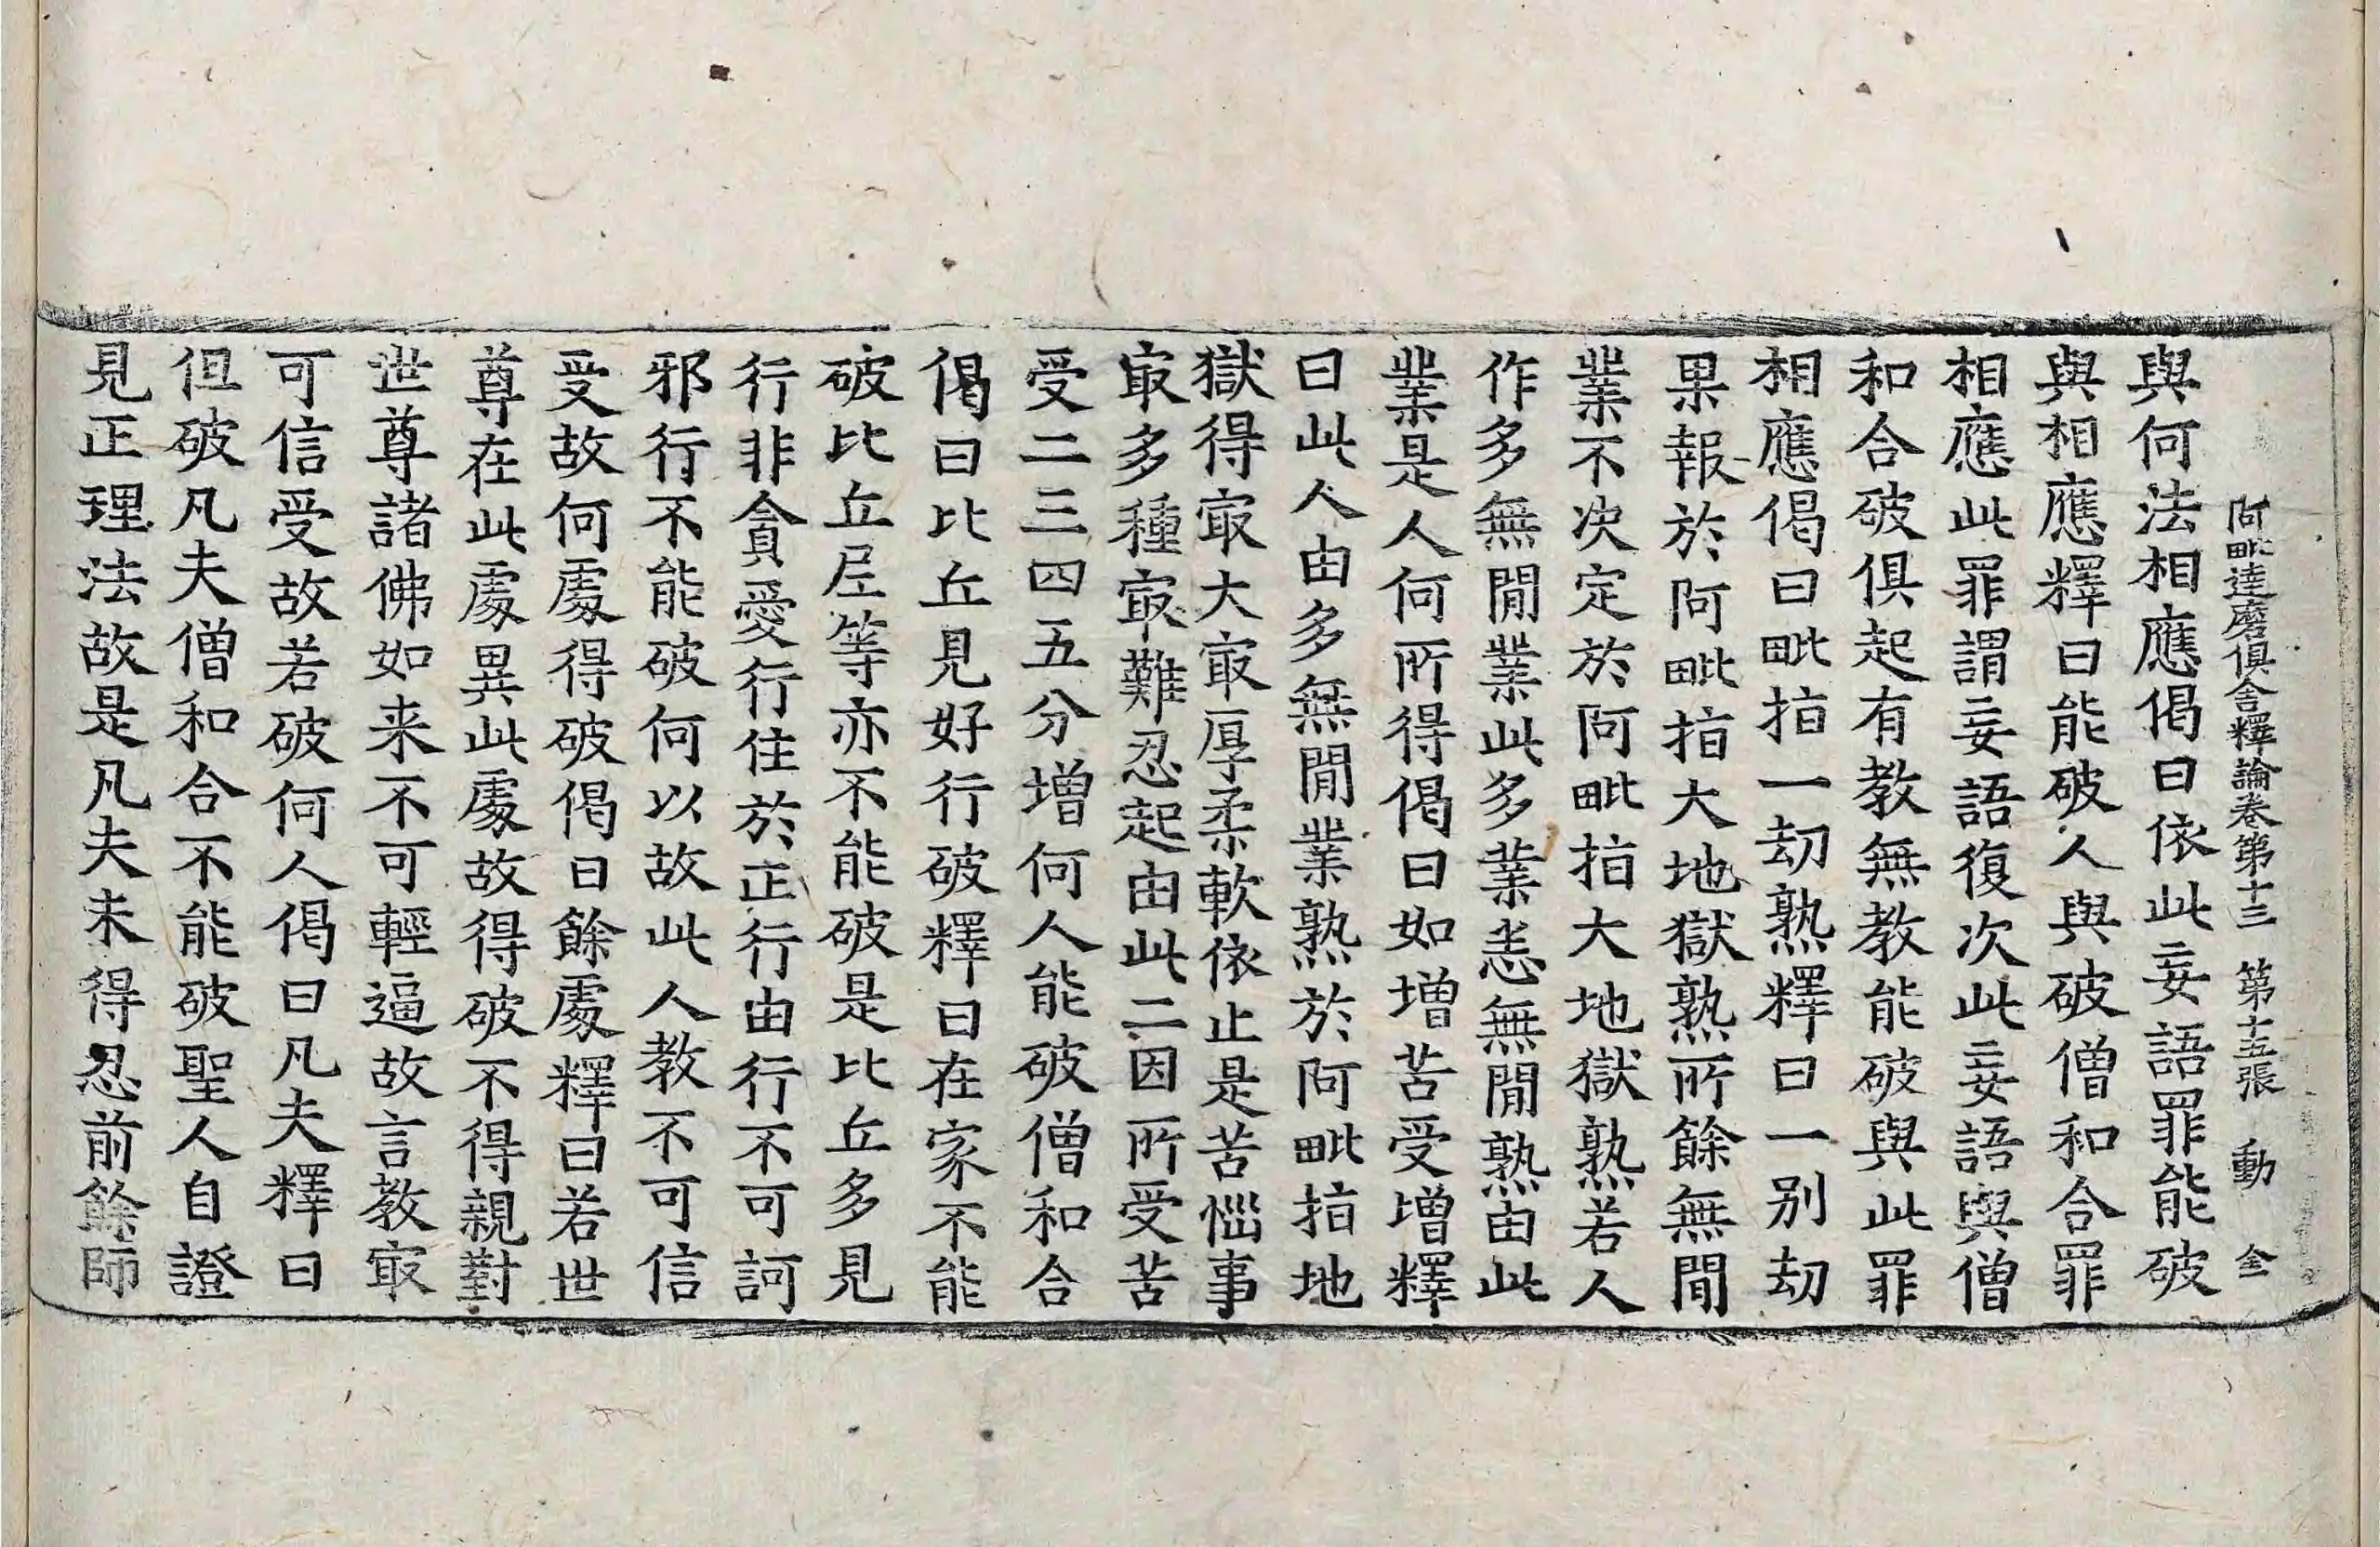 阿毗達磨俱舍釋論卷第十三 第十五張 動 全
與何法相應偈曰依此妄語罪能破
與相應釋曰能破人與破僧和合罪
相應此罪謂妄語復次此妄語與僧
和合破俱起有教無教能破與此罪
相應偈曰毗指一劫熟釋曰一別劫
果報於阿毗指大地獄熟所餘無間
業不次定於阿毗指大地獄熟若人
作多無間業此多業恙無間熟由此
業是人何所得偈曰如增苦受增釋
曰此人由多無間業熟於阿毗指地
獄得㝡大㝡厚柔軟依止是苦惱事
㝡多種㝡難忍起由此二因所受苦
受二三四五分增何人能破僧和合
偈曰比丘見好行破釋曰在家不能
破比丘尼等亦不能破是比丘多見
行非貪愛行住於正行由行不可訶
邪行不能破何以故此人教不可信
受故何處得破偈曰餘處釋曰若世
尊在此處異此處故得破不得親對
世尊諸佛如来不可輕逼故言教㝡
可信受故若破何人偈曰凡夫釋曰
但破凡夫僧和合不能破聖人自證
見正理法故是凡夫未得忍前餘師